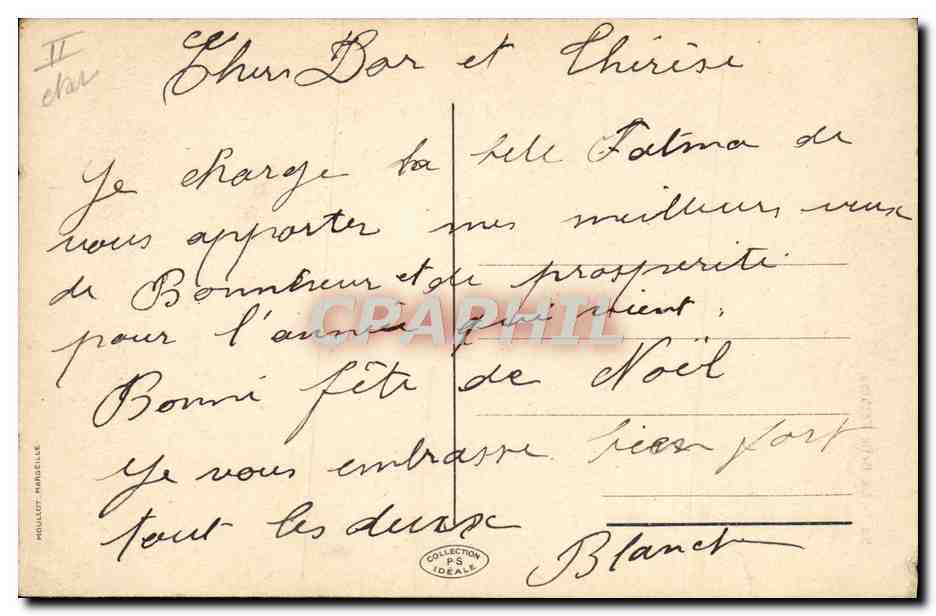 II
Chers Dar et Thérèse
Je charge la belle Fatma de
vous apporter mes meilleurs vœux
de Bonnheur et de prosperité
pour l'année qui vient.
Bonne fête de Noël
Je vous embrasse bien fort
tout les deux
Blanche
MOULLOT MARSEILLE
COLLECTION
PS
IDÉALE
CPARAPHIL